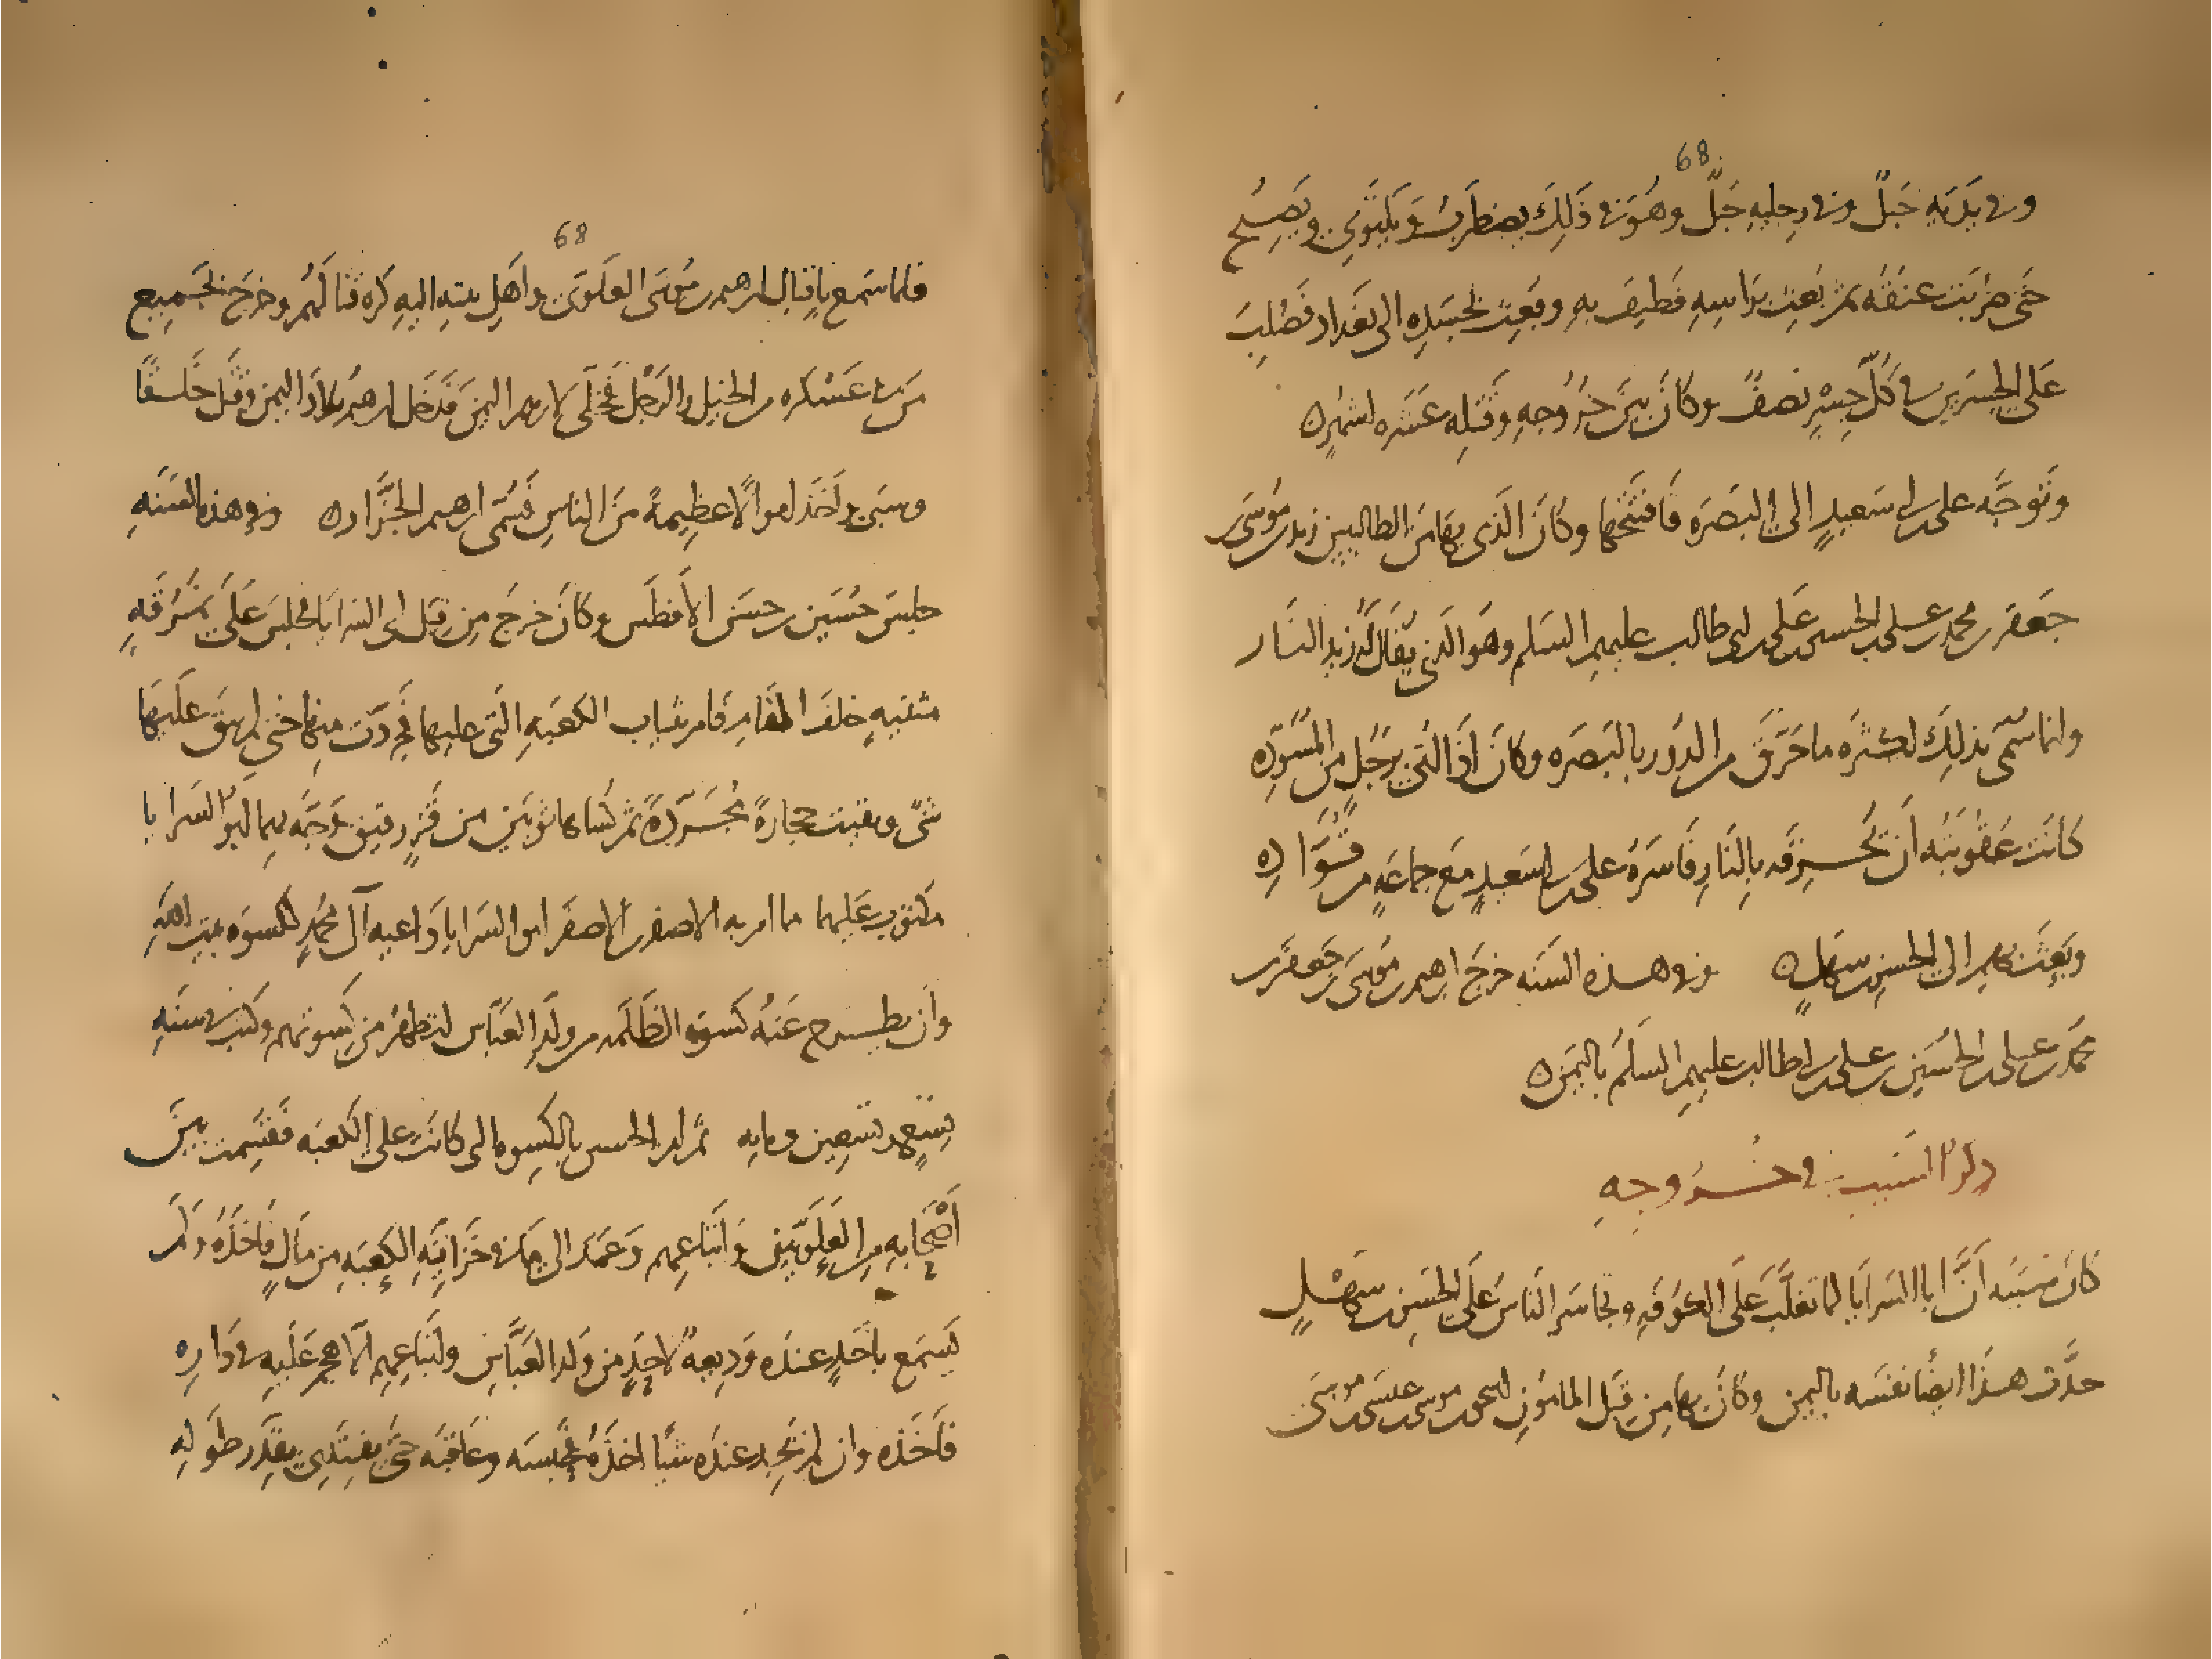 68
وفي يديه حبل وفي رجليه حبل وهو في ذلك يضطرب ويلتوي ويصيح
حتى ضربت عنقه ثم بعث براسه فطيف به وبعث بجسده الى بغداد فصلب
على الجسرين في كل جسر نصف وكان بين خروجه وقتله عشره اشهر ه
وتوجه علي بن ابي سعيد الى البصره فافتتحها وكان الذي بها من الطالبيين زيد بن موسى بن
جعفر بن محمد بن علي بن الحسين بن علي بن ابي طالب عليهم السلم وهو الذي يقال له زيد النار
وانما سمي بذلك لكثره ما حرق من الدور بالبصره وكان اذا اتي برجل من المسوده
كانت عقوبته ان يحرقه بالنار فاسره علي بن ابي سعيد مع جماعه من قواده
وبعث بهم الى الحسن بن سهل ه وفي هذه السنه خرج ابرهيم بن موسى بن جعفر بن
محمد بن علي بن الحسين بن علي بن ابي طالب عليهم السلم باليمن ه
ذكر السبب في خروجه
كان سببه ان ابا السرايا لما تغلب على الكوفه وتجاسر الناس على الحسن بن سهل
حدث هذا ايضا نفسه باليمن وكان بها من قبل المامون اسحق بن موسى بن عيسى بن موسى
68
فلما سمع باقبال ابرهيم بن موسى العلوي واهل بيته اليه كره قتالهم وخرج بجميع
من في عسكره من الخيل والرجل فخلى لابرهيم اليمن فدخل ابرهيم بلاد اليمن وقتل خلقا
وسبى واخذ اموالا عظيمه من الناس فسمي ابرهيم الجزار ه وفي هذه السنه
جلس حسين بن حسن الافطس وكان خرج من قبل ابي السرايا فجلس على نمرقه
مثنيه خلف المقام فامر بثياب الكعبه التي عليها فجردت منها حتى لم يبق عليها
شي وبقيت حجاره مجرده ثم كساها ثوبين من قز رقيق وجه بهما ابو السرايا
مكتوب عليهما ما امر به الاصفر بن الاصفر ابو السرايا داعيه آل محمد لكسوه بيت الله
وان يطرح عنه كسوه الظلمه من ولد العباس لتطهر من كسوتهم وكتب في سنه
تسع وتسعين ومايه ثم امر الحسين بالكسوه التي كانت على الكعبه فقسمت بين
اصحابه من العلويين واتباعهم وعمد الى ما في خزانه الكعبه من مال فاخذه ولم
يسمع باحد عنده وديعه لاحد من ولد العباس واتباعهم الا هجم عليه في داره
فاخذه وان لم يجد عنده شيا اخذه فحبسه وعاقبه حتى يفتدي بقدر طوله